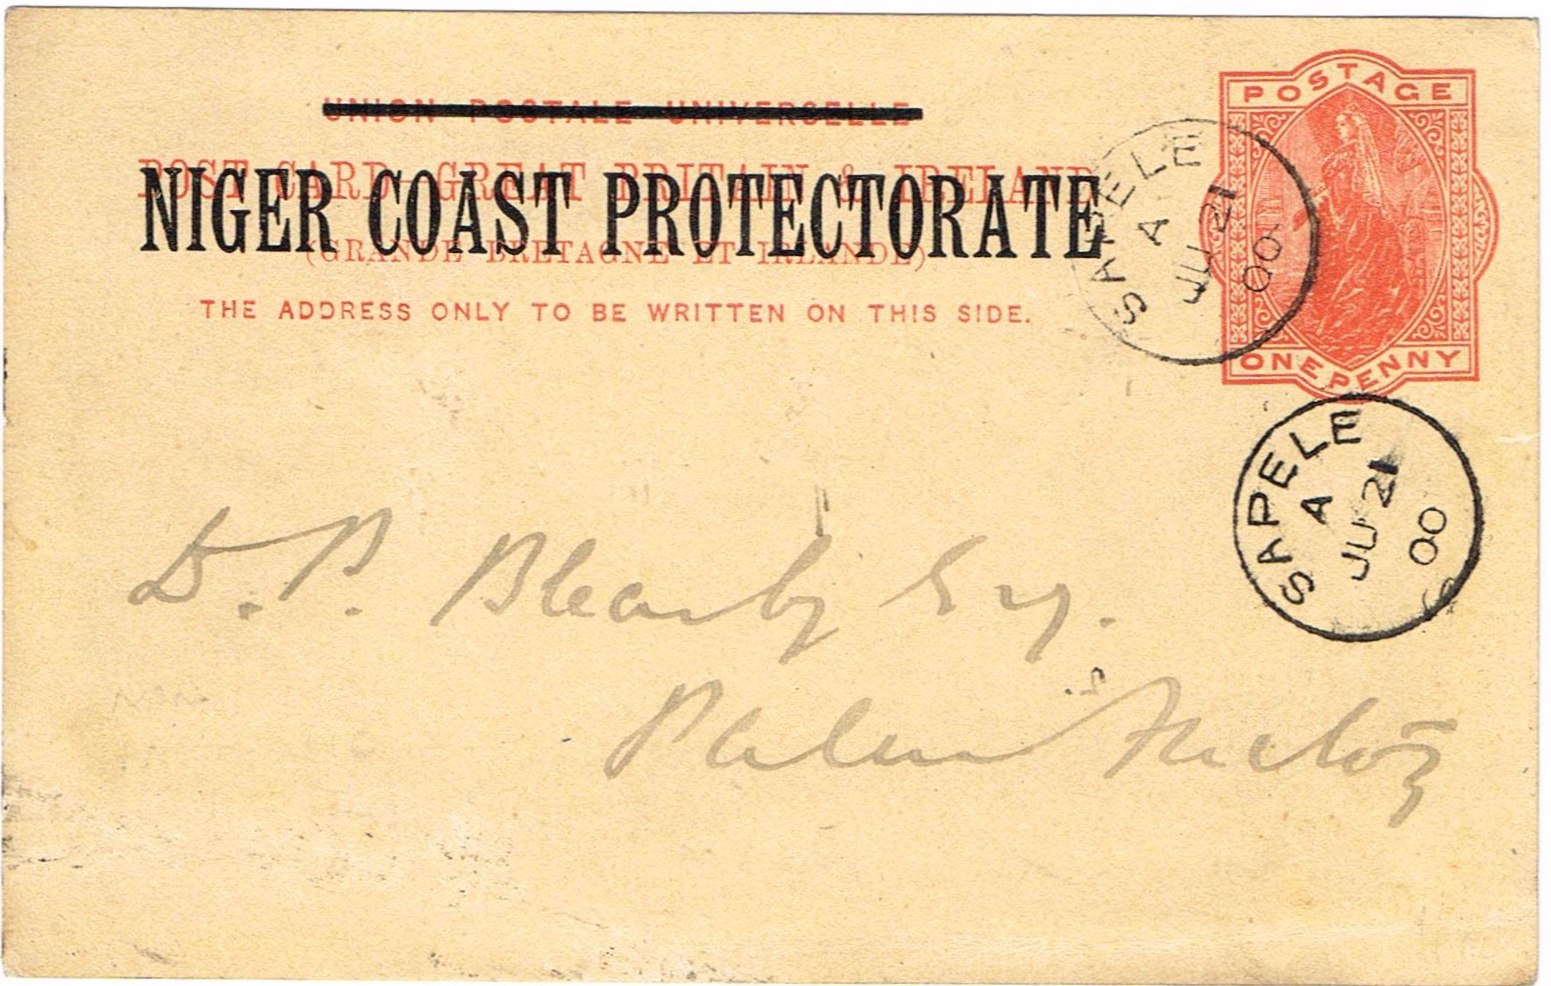 UNION POSTALE UNIVERSELLE
POST CARD GREAT BRITAIN & IRELAND
NIGER COAST PROTECTORATE
(GRANDE BRETAGNE ET IRLANDE)
THE ADDRESS ONLY TO BE WRITTEN ON THIS SIDE.
POSTAGE
ONE PENNY
SAPELE
A
JU 21
00
SAPELE
A
JU 21
00
D. P. Bleasby Esq.